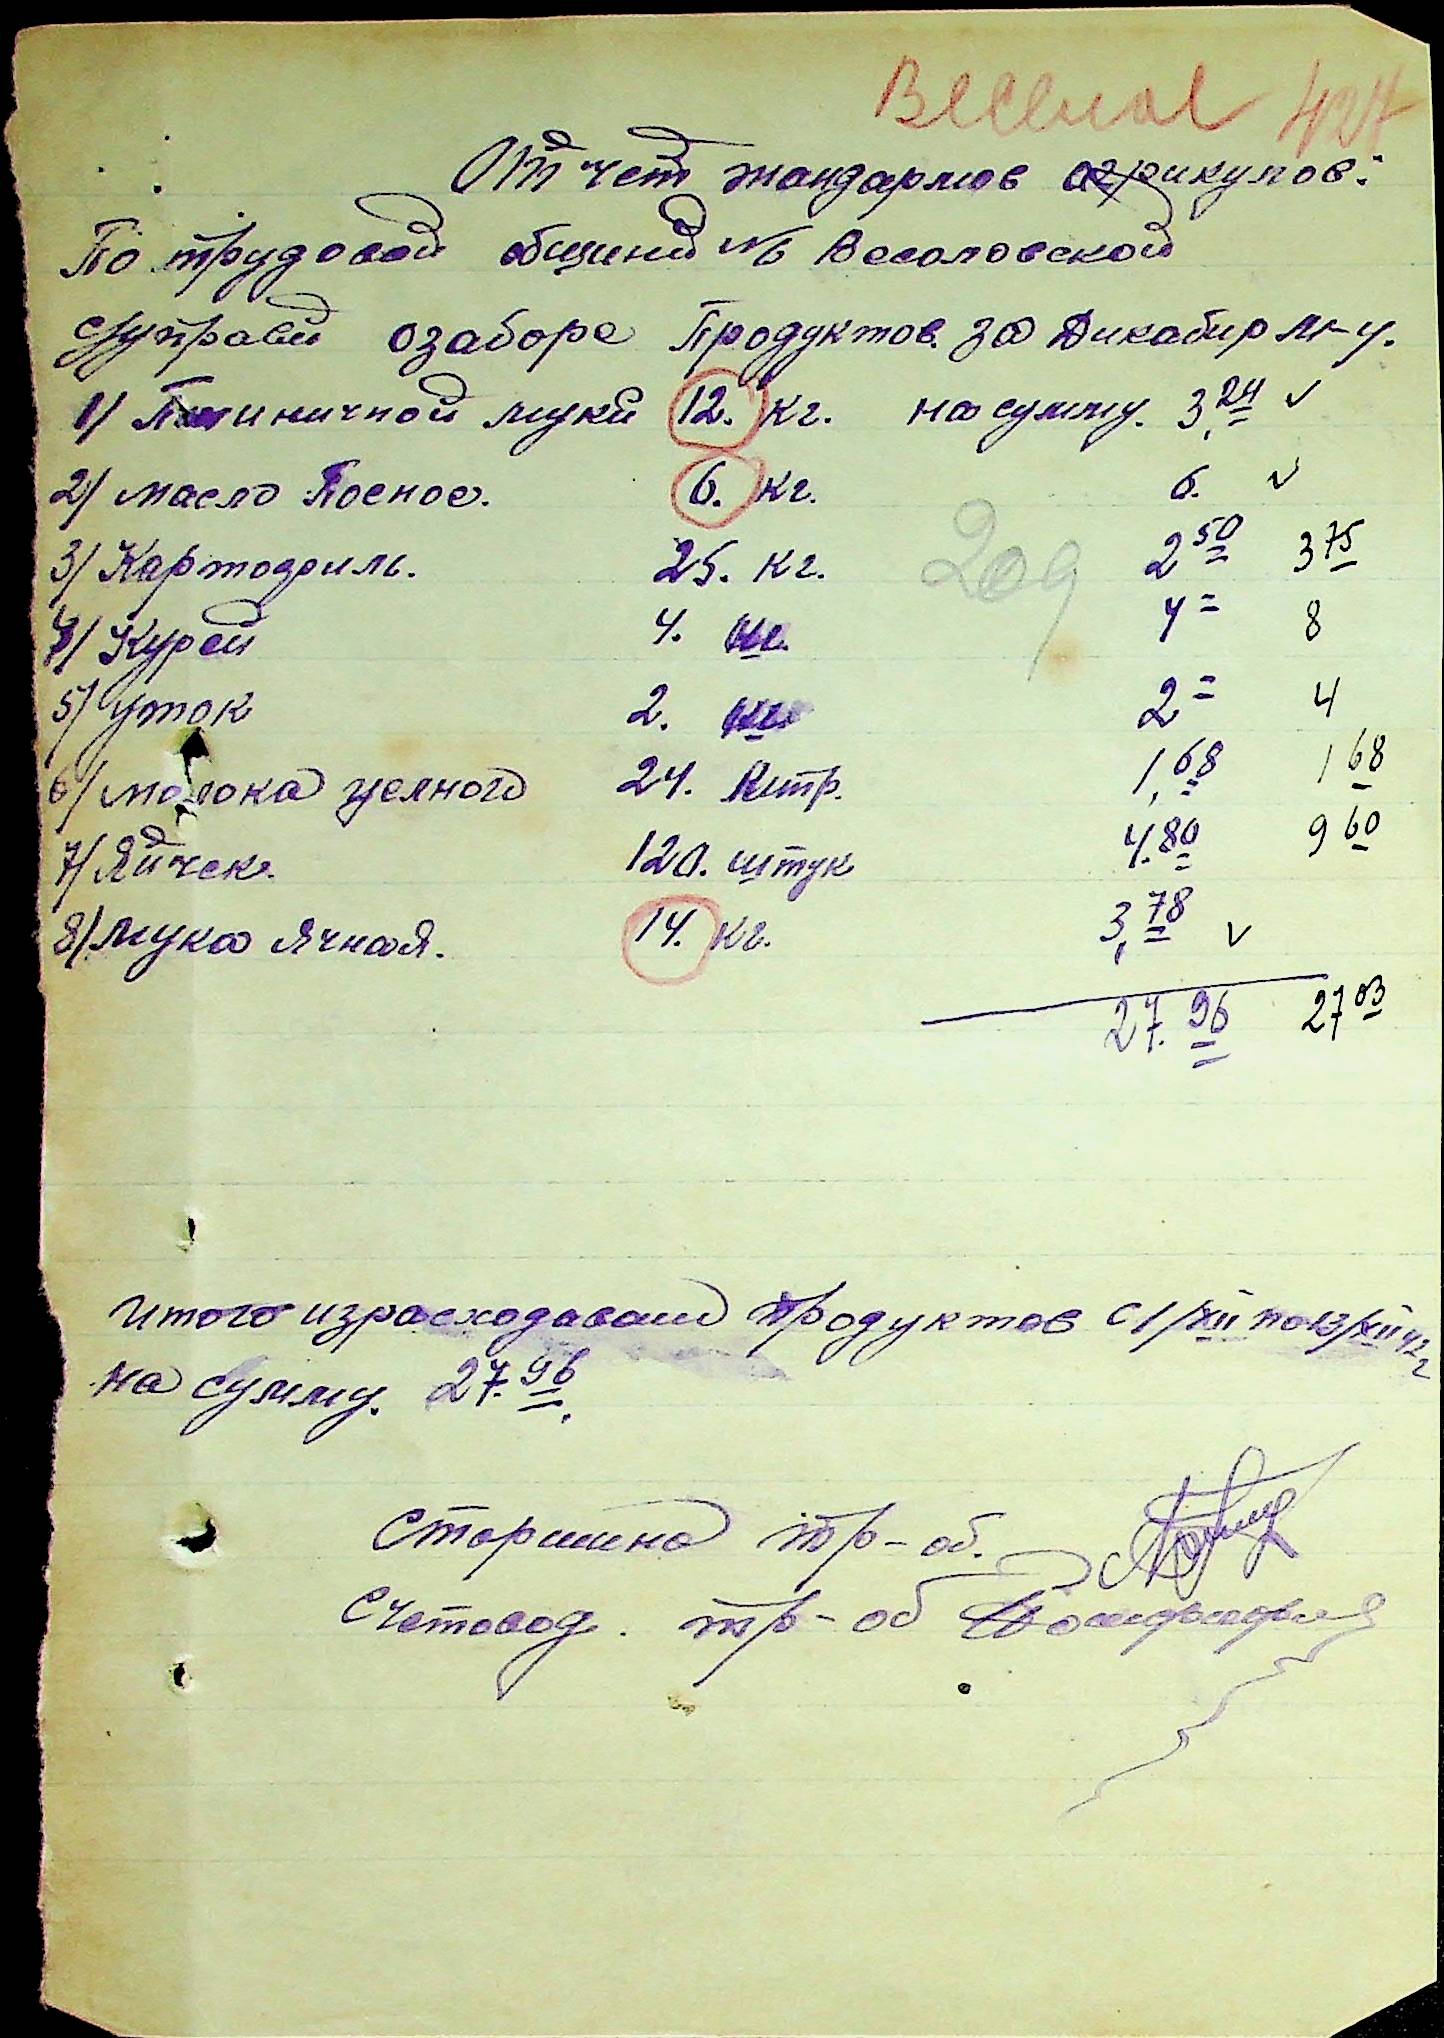 Веселое 427
Отчет жандармов
По трудовой общины №6 Весоловской
с/управы о заборе Продуктов за Дикабир м-ц.
1/ Пшиничной муки 12. кг. на сумму. 3,24 ✓
2/ масло Посное. 6. кг. 6. ✓
209
3/ Картодриль. 25. кг. 2 50 3 75
4/ Курей 4. 4 = 8
5/ Уток 2. 2 = 4
6/ молока целного 24. литр. 1,68 1 68
7/ Яйчек 120. штук 4.80 9 60
8/ Мука Ячная. 14. кг. 3,78 ✓
27.96 27 03
Итого израсходаваны продуктов с 1/XII по 13/XII 42 г
на сумму. 27.96.
Старшина тр-об.
Счетовод. тр-об